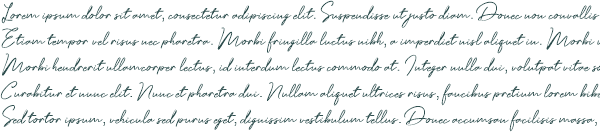 Lorem ipsum dolor sit amet, consectetur adipiscing elit. Suspendisse ut justo diam. Donec non convallis
Etiam tempor vel risus nec pharetra. Morbi fringilla luctus nibh, a imperdiet nisl aliquet in. Morbi
Morbi hendrerit ullamcorper lectus, id interdum lectus commodo at. Integer nulla dui, volutpat vitae
Curabitur et nunc elit. Nunc et pharetra dui. Nullam aliquet ultrices risus, faucibus pretium lorem
Sed tortor ipsum, vehicula sed purus eget, dignissim vestibulum tellus. Donec accumsan facilisis massa,